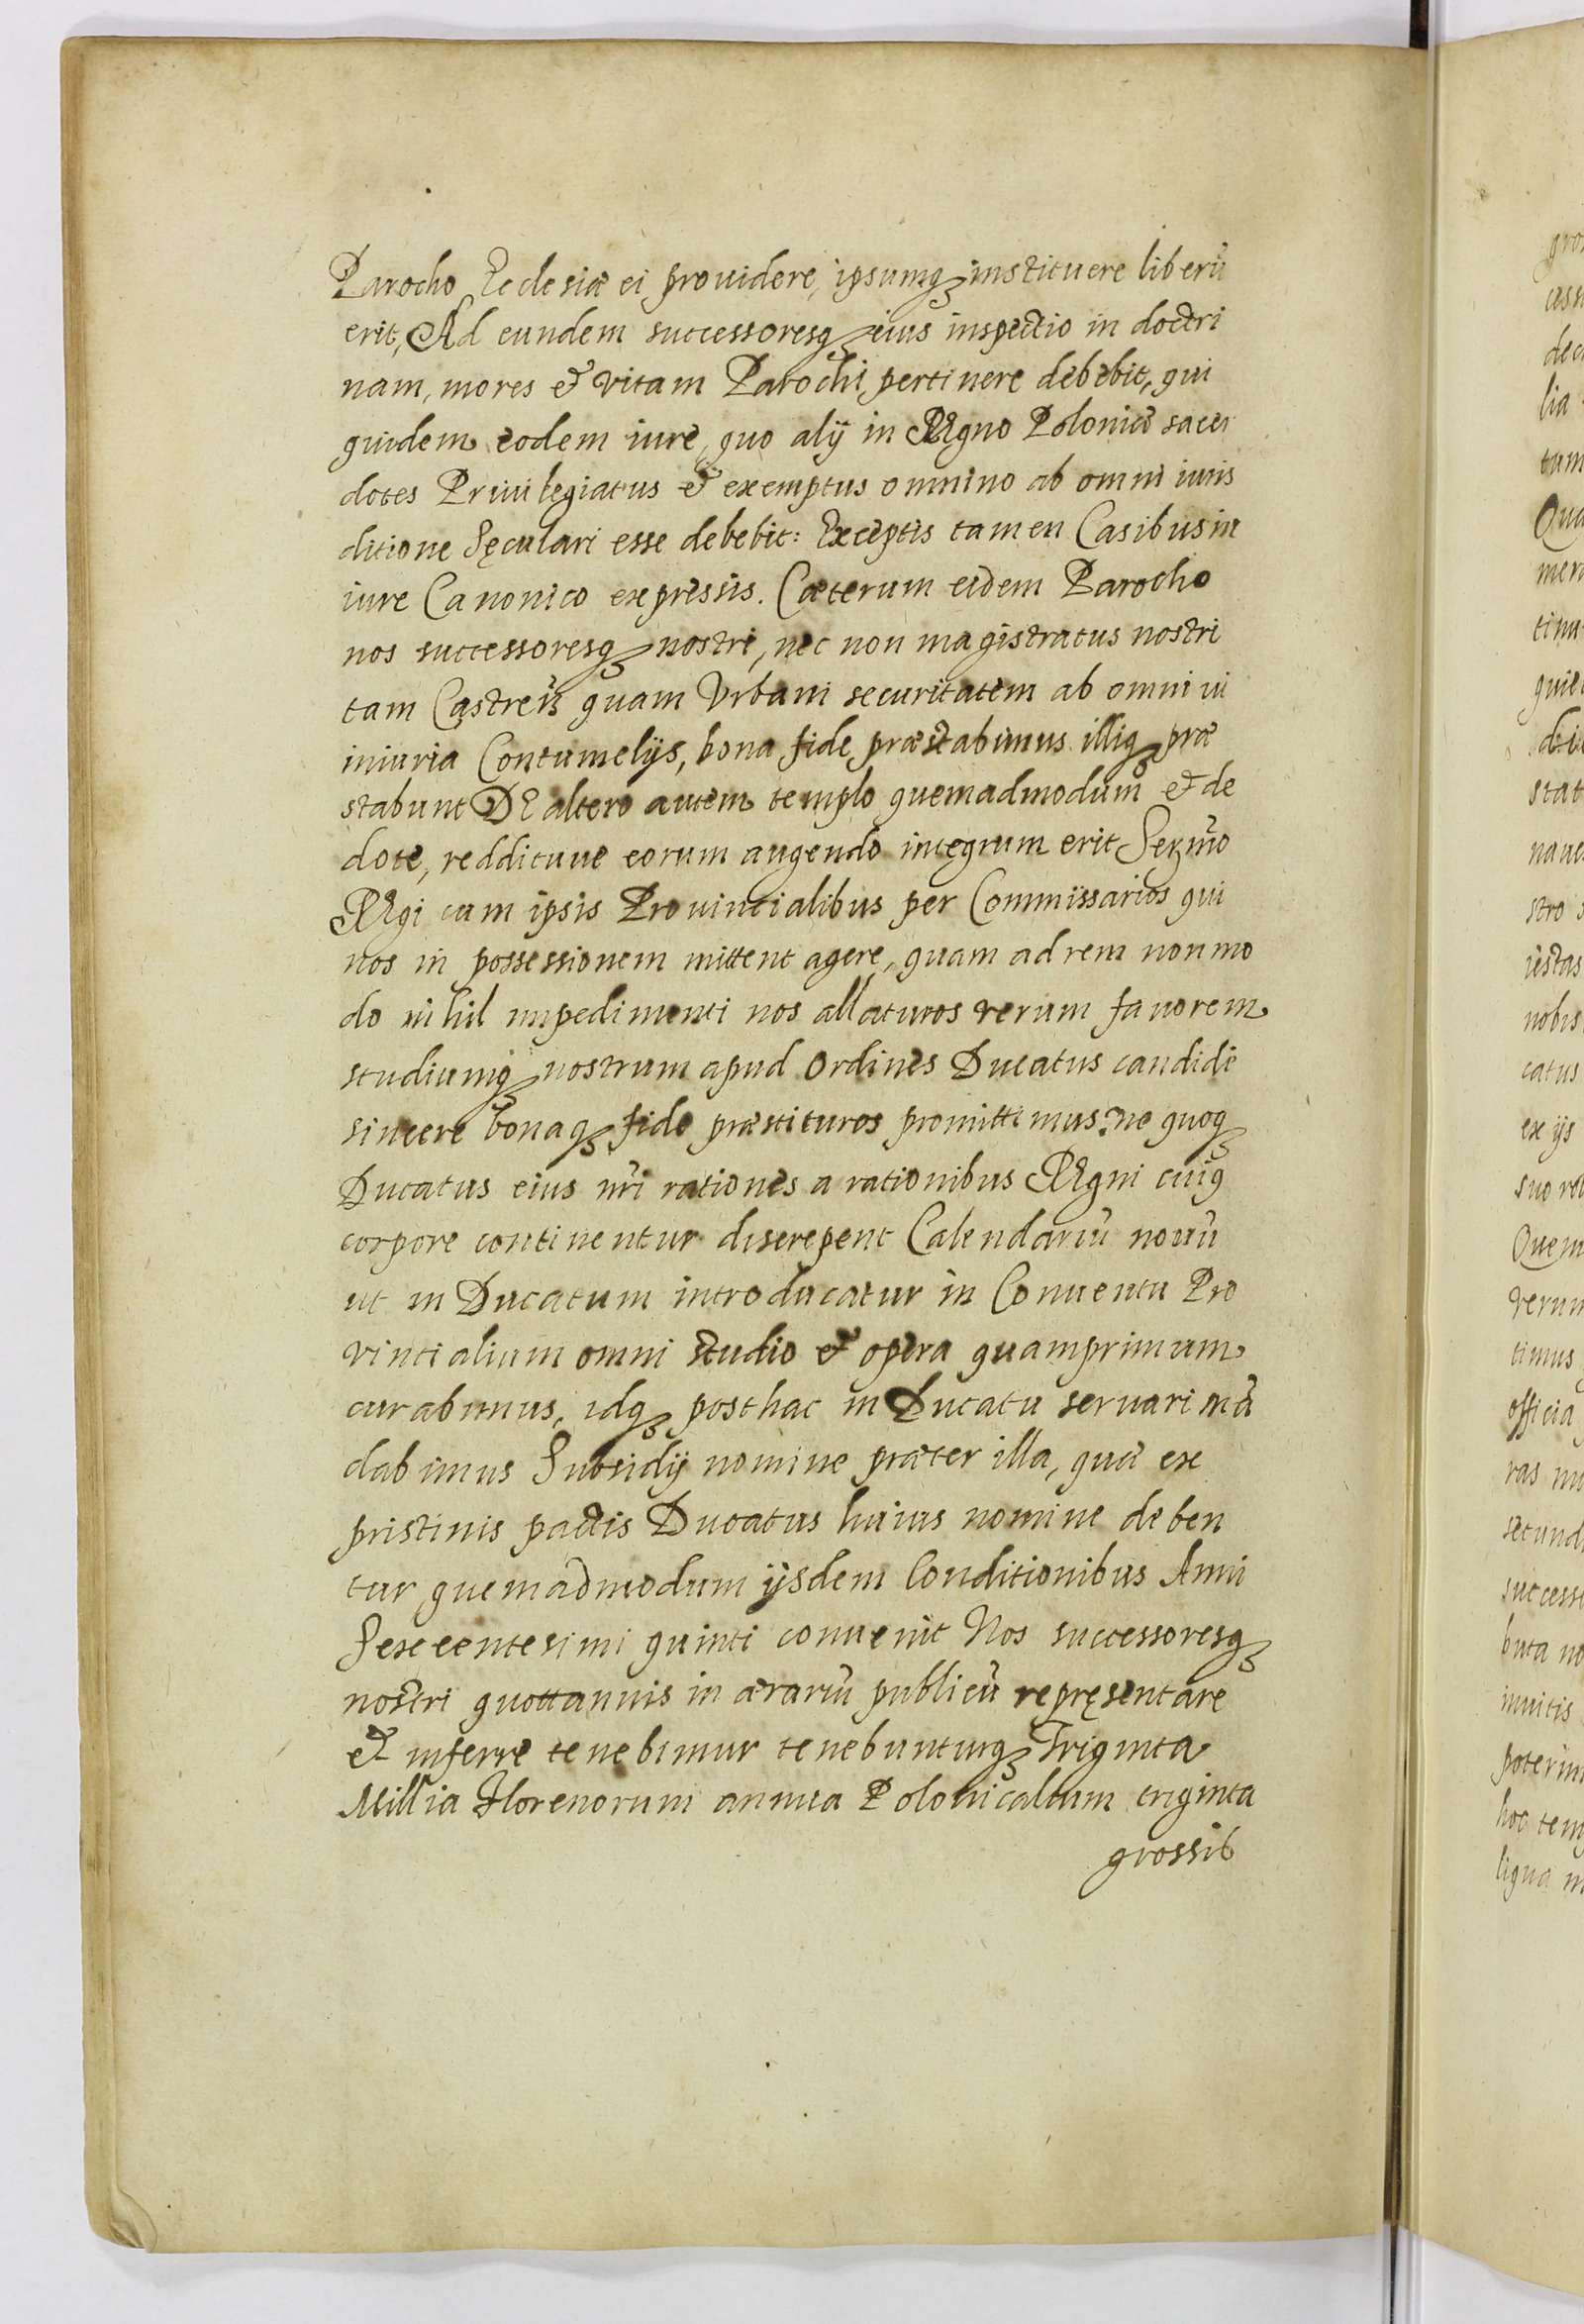 Parocho Ecclesiæ ei prouidere, ipsumq₃ instituere liberũ
erit, Ad eundem successoresq₃ eius inspectio in doctri
nam, mores et vitam Parochi pertinere debebit, qui
quidem eodem iure, quo alij in REgno Poloniæ sacer
dotes Priuilegiatus et exemptus omnino ab omni iuris
ditione Sęculari esse debebit: Exceptis tamen Casibus in
iure Canonico expressis. Cæterum eidem Parocho
nos successoresq₃ nostri, nec non magistratus nostri
tam Castreñ quam Vrbani securitatem ab omni ui
iniuria Contumelijs, bona fide præstabimus illiq₃ præ
stabunt DE altero autem templo quemadmodum et de
dote, reddituue eorum augendo integrum erit Serm̃o
REgi cum ipsis Prouincialibus per Commissarios qui
nos in possessionem mittent agere, quam ad rem non mo
do nihil impedimenti nos allaturos verum fauorem
studiumq₃ nostrum apud Ordines Ducatus candide
sincere bonaq₃ fide præstituros promittimus: ne quoq₃
Ducatus eius nr̃i rationes a rationibus REgni cuiq
corpore continentur discrepent Calendariũ nouũ
ut in Ducatum introducatur in Conuentu Pro
vincialium omni studio et opera quamprimum
curabimus, idq₃ posthac in Ducatu seruari mã
dabimus Subsidij nomine præter illa, quæ ex
pristinis pactis Ducatus huius nomine deben
tur quemadmodum ijsdem Conditionibus Anni
Sexcentesimi quinti conuenit Nos successoresq₃
nostri quottannis in ærariũ publicũ repręsentare
et inferre tenebimur tenebunturq₃ Triginta
Millia Florenorum annua Polonicalium triginta
grossib
gro
dec
lia
tum
Qua
men
quie
stat
stro
nobis
catus
ex ijs
Quem
verum
timus
officia
secund
successo
buta no
inuitis
hoc tem